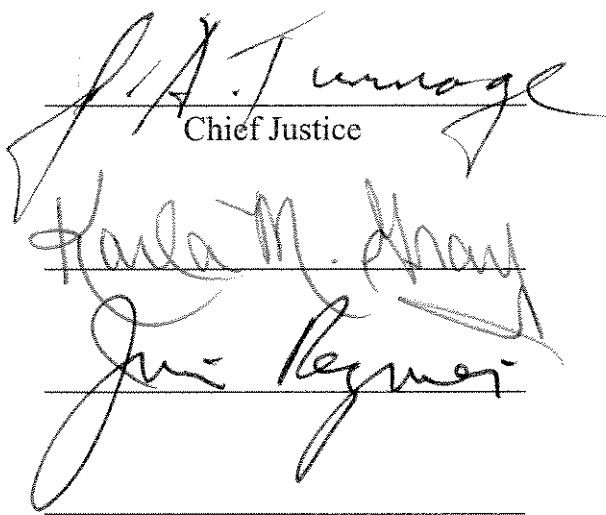 J. A. Turnage
Chief Justice
Karla M. Gray
Jim Regnier